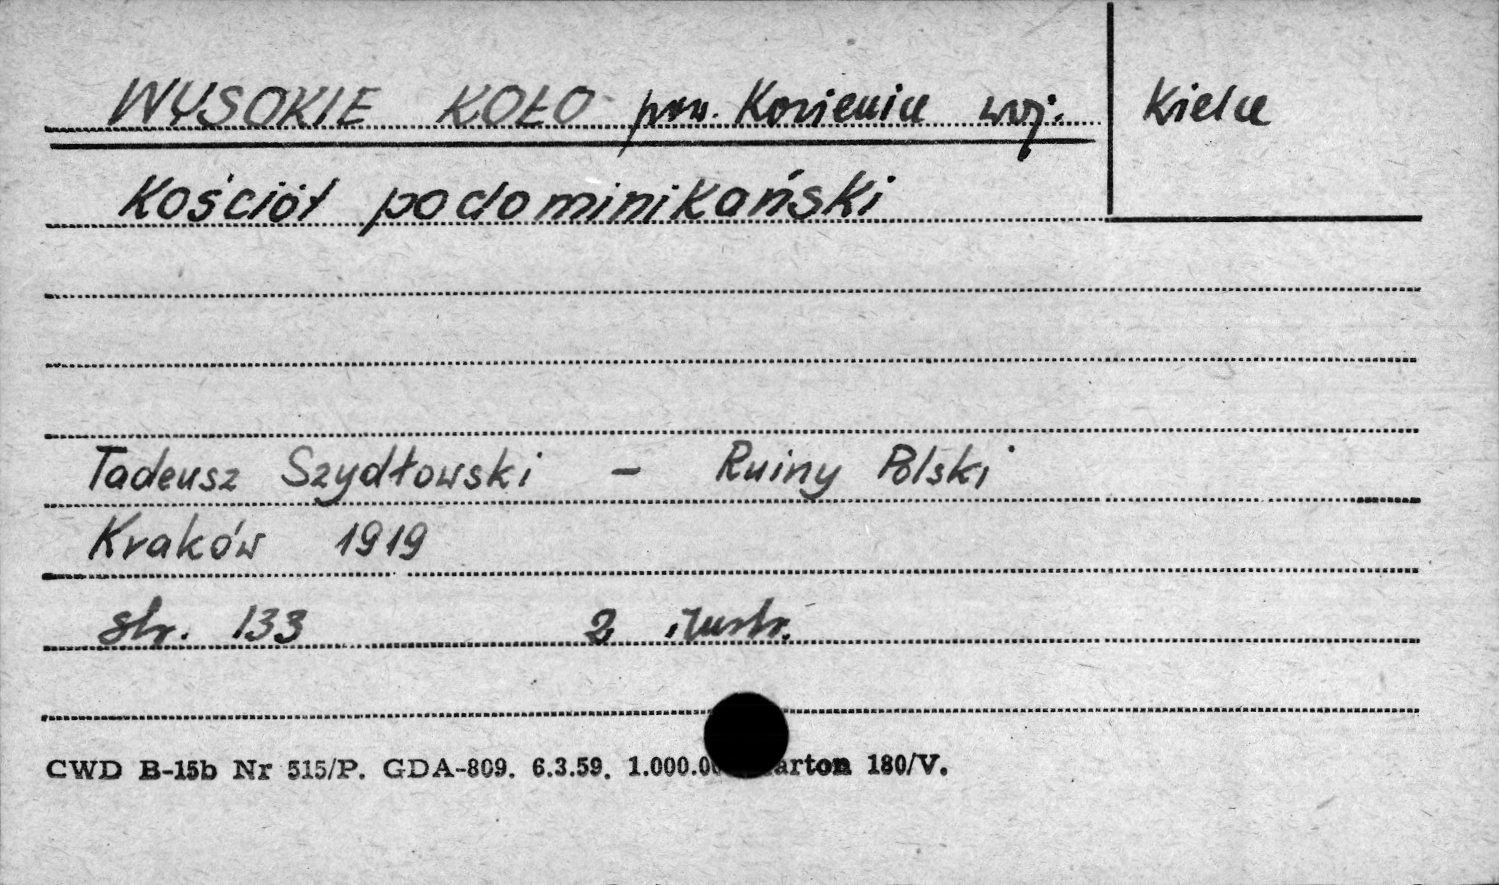 WYSOKIE KOŁO pow. Kozienice woj. Kielce
Kościół podominikański
Tadeusz Szydłowski – Ruiny Polski
Kraków 1919
str. 133 2 ilustr.
CWD B-15b Nr 515/P. GDA-809. 6.3.59. 1.000.00 arton 180/V.